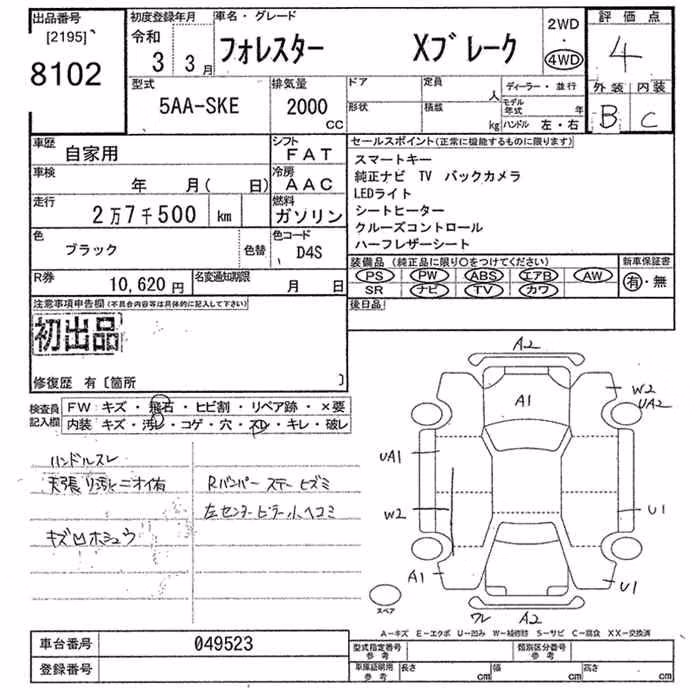 出品番号
[2195]
8102
初度登録年月
令和
3 3月
車名・グレード
フォレスター Xブレーク
2WD
・
4WD
評価点
4
外装 内装
B C
型式
5AA-SKE
排気量
2000
CC
ドア
形状
定員
人
積載
kg
ディーラー・並行
モデル
年式 年
ハンドル 左・右
車歴
自家用
シフト
FAT
車検
年 月( 日)
冷房
AAC
走行
2万7千500 km
燃料
ガソリン
色
ブラック
色替
色コード
D4S
R券
10,620円
名変通知期限
月 日
セールスポイント(正常に機能するものに限ります)
スマートキー
純正ナビ TV バックカメラ
LEDライト
シートヒーター
クルーズコントロール
ハーフレザーシート
装備品(純正品に限り○をつけてください)
PS PW ABS エアB AW
SR ナビ TV カワ
新車保証書
有・無
後日品
注意事項申告欄(不具合内容等は具体的に記入して下さい)
初出品
修復歴 有〔箇所 〕
検査員
記入欄
FW キズ・飛石・ヒビ割・リペア跡・×要
内装 キズ・汚レ・コゲ・穴・スレ・キレ・破レ
ハンドルスレ
天張り汚れニオイ有
キズ凹ホシュウ
Rバンパーステーヒズミ
左センターピラー小ヘコミ
A2
A1
W2
UA2
UA1
W2
U1
A1
U1
ワレ A2
スペア
A-キズ E-エクボ U-凹み W-補修跡 S-サビ C-腐食 XX-交換済
車台番号
049523
登録番号
型式指定番号
参考
類別区分番号
参考
車庫証明用
参考
長さ cm
幅 cm
高さ cm